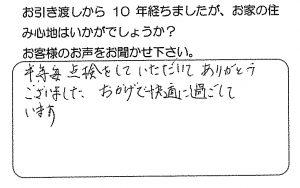 お引き渡しから 10 年経ちましたが、お家の住
み心地はいかがでしょうか？
お客様のお声をお聞かせ下さい。
半年毎 点検をしていただいて ありがとう
ございました。おかげで快適に過ごして
います